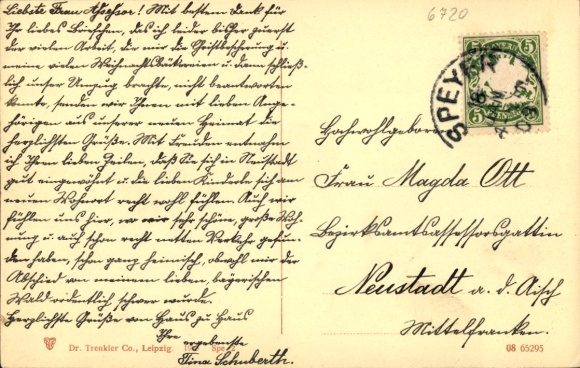 Liebste Frau Assessor! Mit bestem Dank für
Ihr liebes Brieflein, das ich leider bisher zuerst
der vielen Arbeit, die mir die Christbescherung u.
meine vielen Weihnachtsbäckereien u. dann schließ-
lich unser Umzug brachte, nicht beantworten
konnte, senden wir Ihnen mit lieben Ange-
hörigen aus unserer neuen Heimat die
herzlichsten Grüße. Mit Freuden entnahm
ich Ihren lieben Zeilen, daß Sie sich in Neustadt
gut eingewöhnt u. die lieben Kinderle sich am
neuen Wohnort recht wohl fühlen. Auch wir
fühlen uns hier, wo wir sehr schöne, große Woh-
nung u. auch schon recht netten Verkehr gefun-
den haben, schon ganz heimisch, obwohl mir der
Abschied von meinem lieben, bayerischen
Wald ordentlich schwer wurde.
Herzlichste Grüße von Haus zu Haus
Ihre
ergebenste
Tina Schuberth.
6720
5 5
5
SPEYER
Hochwohlgeboren
Frau Magda Ott
Bezirksamtsassessorsgattin
Neustadt a. d. Aisch
Mittelfranken.
Dr. Trenkler Co., Leipzig.
08 65295